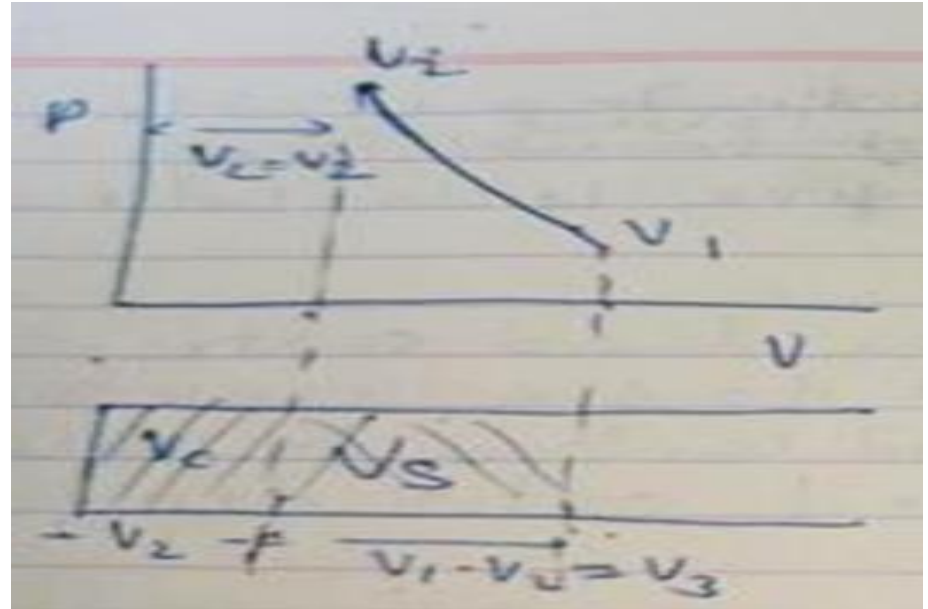 V2
P
Vc = V2
V1
V
Vc
VS
V2
V1 - V2 = V3